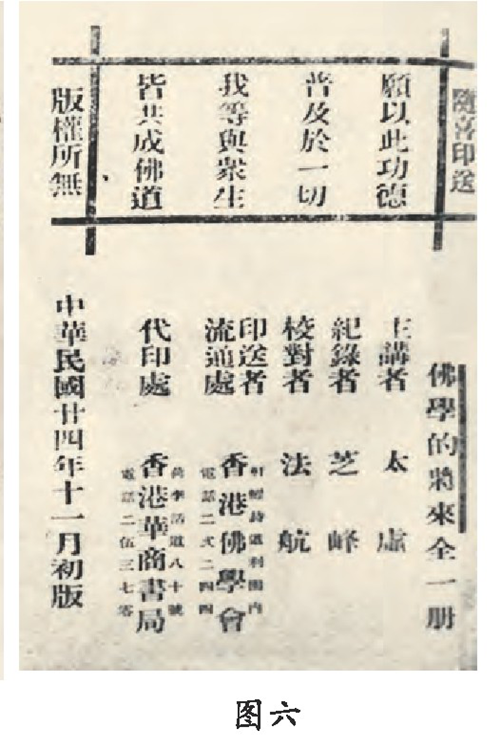 隨喜印送
願以此功德
普及於一切
我等與衆生
皆共成佛道
版權所無
佛學的將來全一册
主講者 太虛
紀錄者 芝峰
校對者 法航
印送者
流通處
香港佛學會
軒鯉詩道利園内
電話二弍二四四
代印處 香港華商書局
荷李活道八十號
電話二伍三七零
中華民國廿四年十一月初版
图六